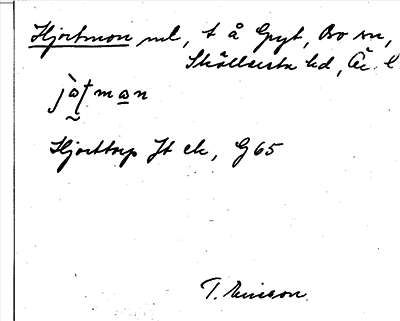 Hjortmon ml, t å Gryt, Bo sn,
Sköllersta hd, Ör. l.
jòtmon
Hjorttorp Jt ek, G 65
T. Ericson